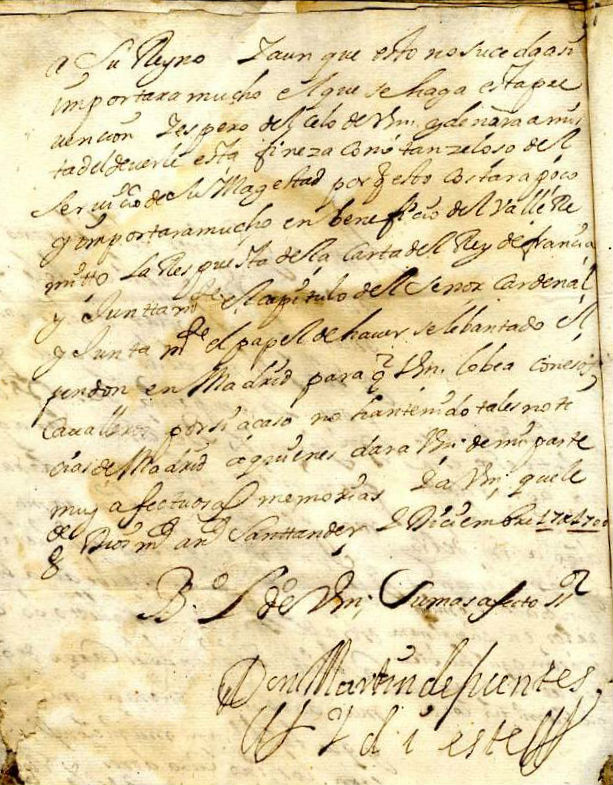 a Su Reyno Y aun que esto no suceda asi
importara mucho el que se haga esta pre
vencion Y espero del celo de Vm. que
esta fineza como tan zeloso del
Servicio de Su Magestad porq esto costara poco
y importara mucho en beneficio del Valle Re
mitto La Respuesta de la Carta del Rey de francia
y Junttamte el capitulo del Señor Cardenal
y Junta mte el papel de haver se lebantado el
pendon en Madrid para q Vm. lo bea con esos
Cavalleros por si acaso no han tenido tales noti
cias de Madrid a quienes dara Vm. de mi parte
muy afectuosas memorias Y a Vm. que le
gde Dios ms as Santtander Y Diciembre 17 de 1700
B. L de Vm. Su mas afecto sr
Don Martin de fuentes